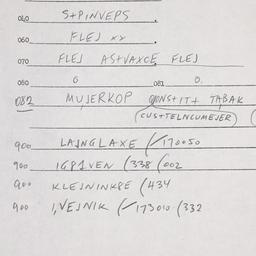 060 S+PINVEPS
060 FLEJ xx
070 FLEJ AS+VAXCE FLEJ
080 0 081 0.
082 MUJERKOP TABAK
(CUS+TELNCUMEJER)
900 LAJNGLAXE (/170050
900 IGP1VEN (338 (002
900 KLEJNINKPE (434
900 I,VEJNIK (/173010 (332